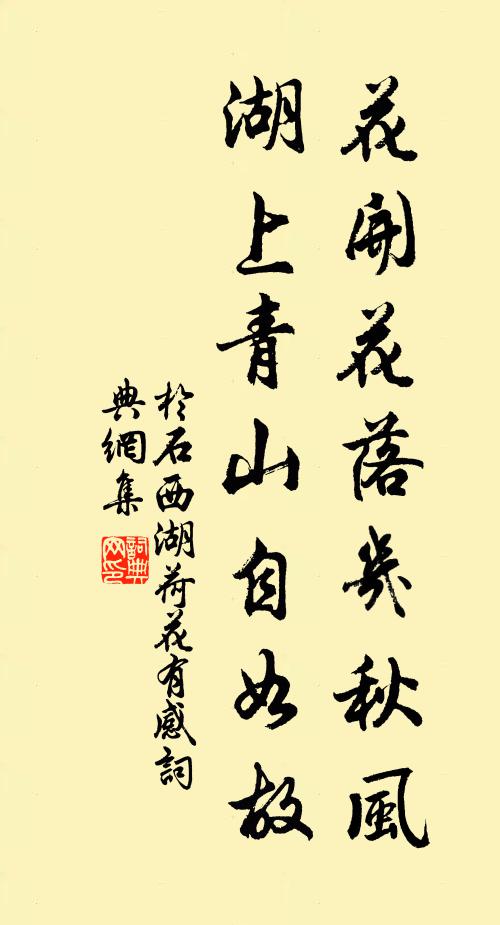 花開花落幾秋風
湖上青山自如故
於石西湖荷花有感詞
典網集
詞典
网印